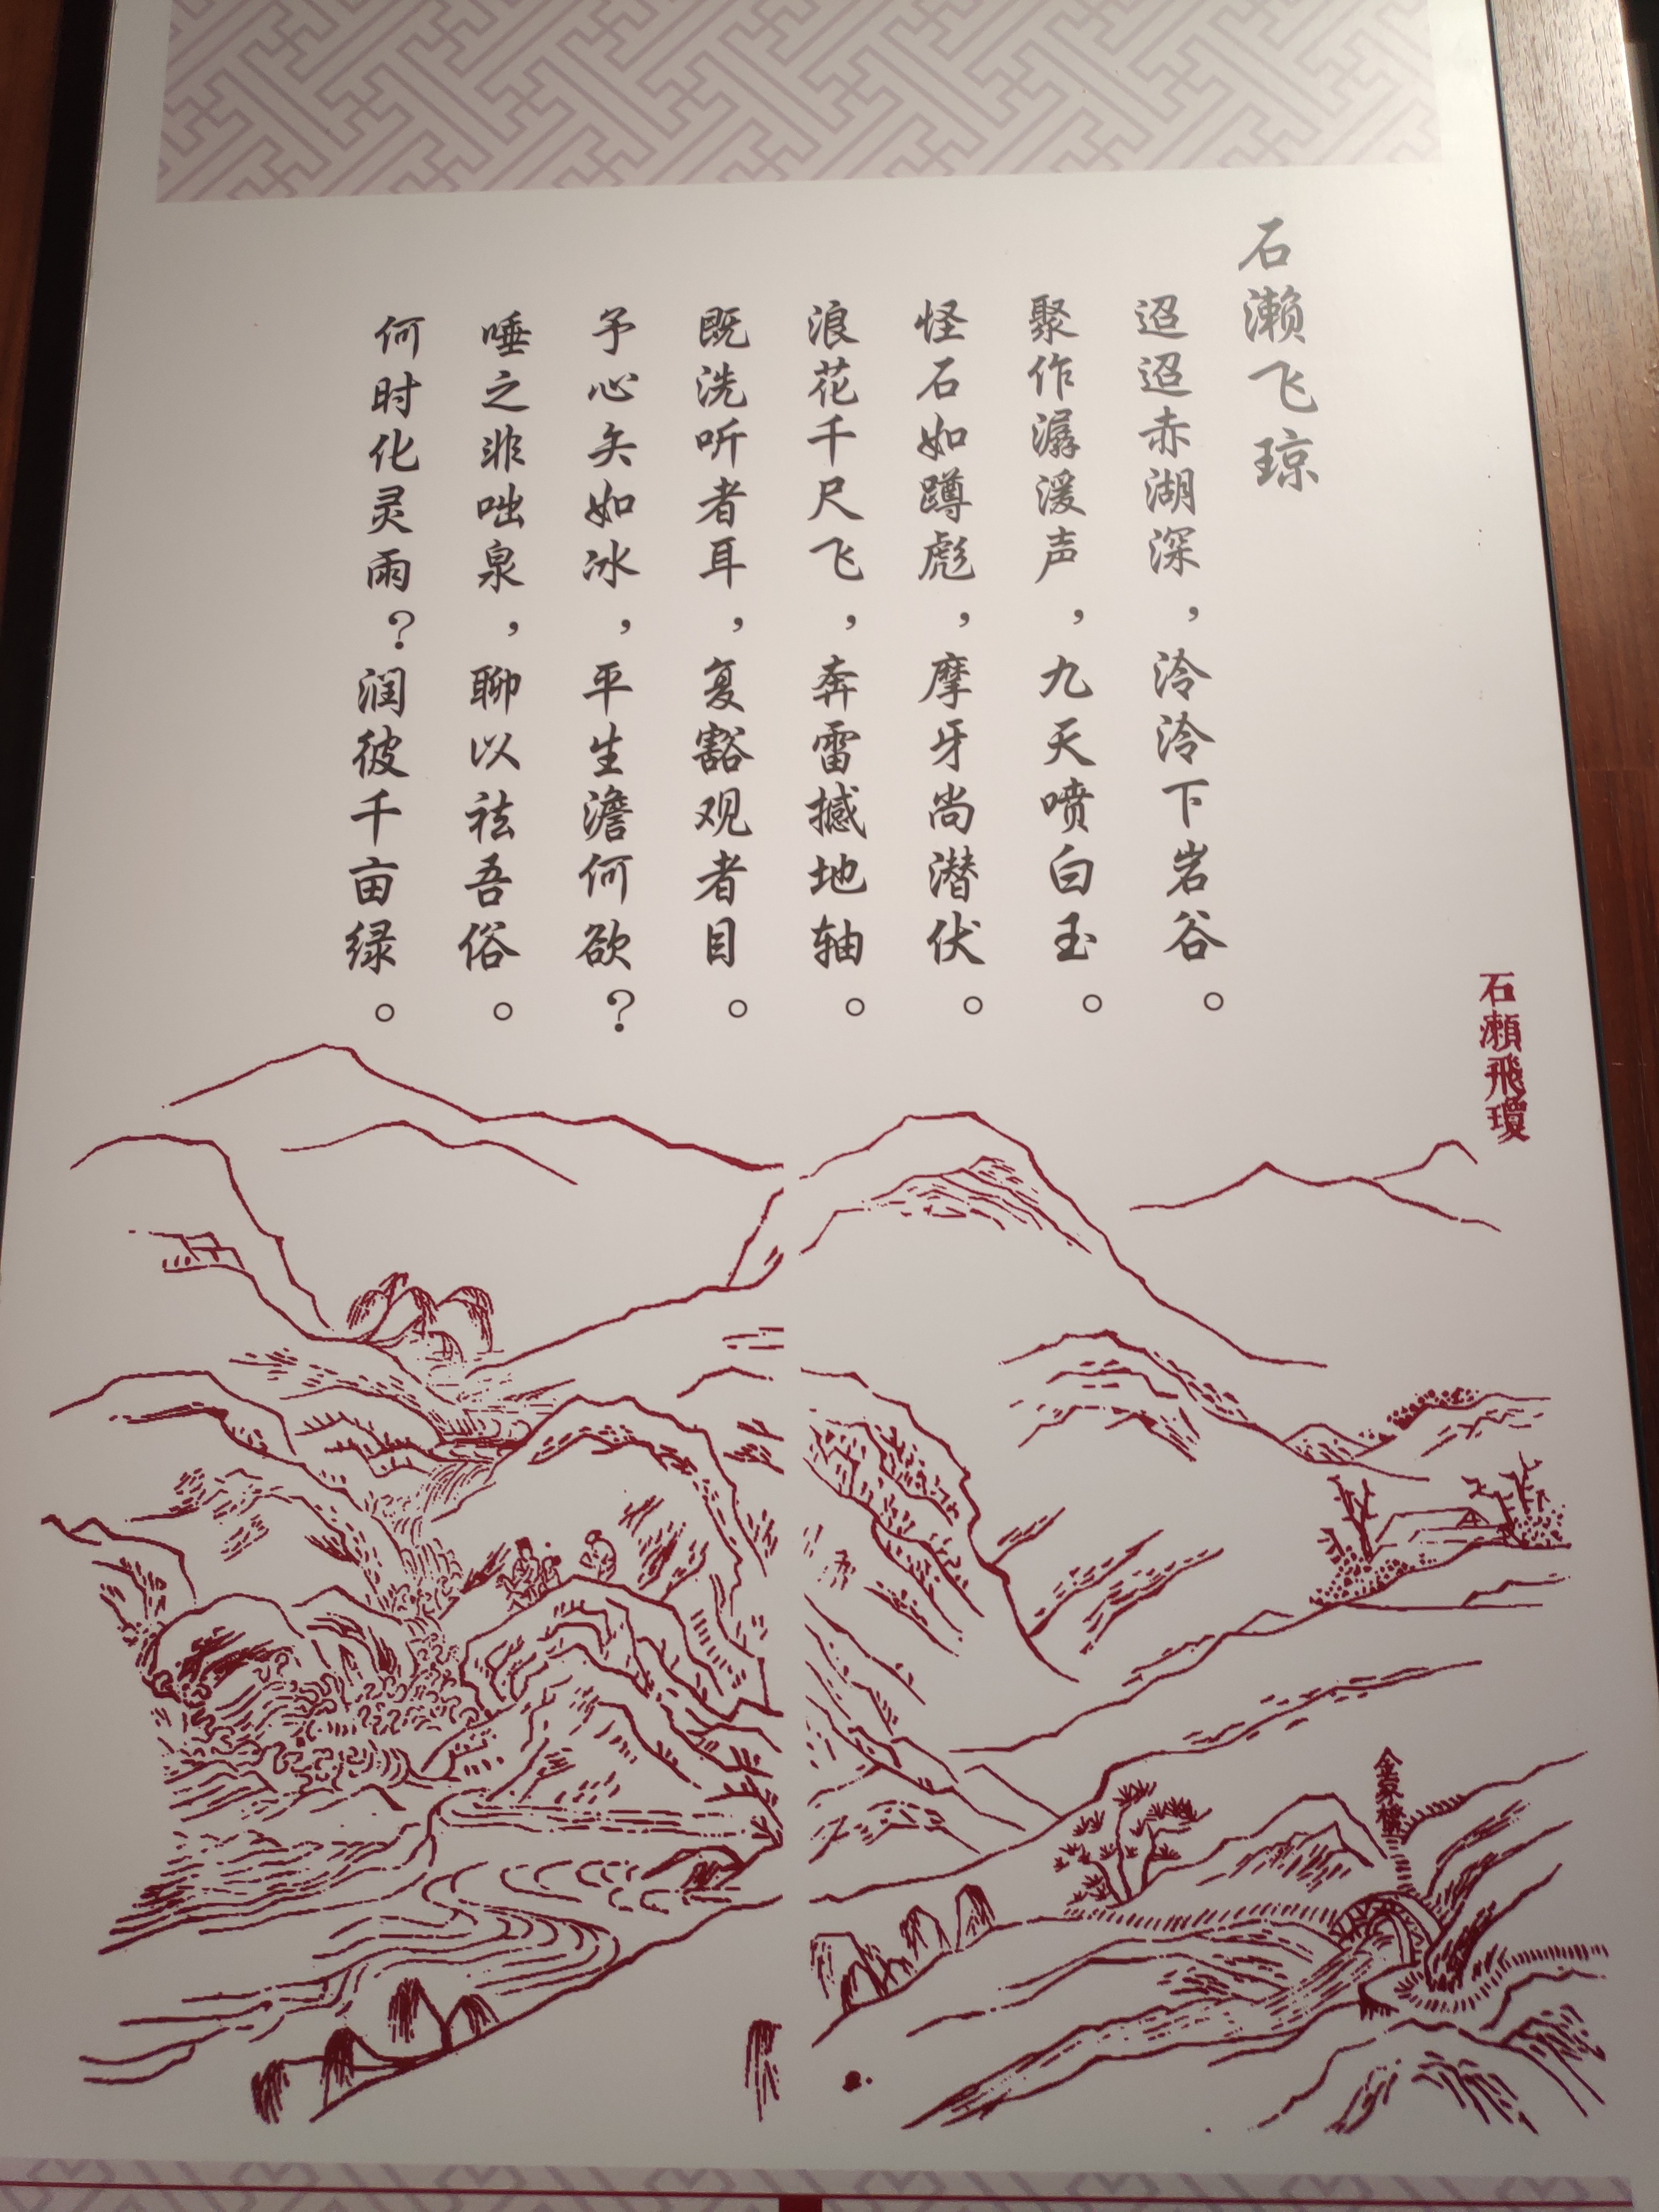 石濑飞琼
迢迢赤湖深，泠泠下岩谷。
聚作潺湲声，九天喷白玉。
怪石如蹲彪，摩牙尚潜伏。
浪花千尺飞，奔雷撼地轴。
既洗听者耳，复豁观者目。
予心矢如冰，平生澹何欲？
唾之非咄泉，聊以祛吾俗。
何时化灵雨？润彼千亩绿。
石瀬飛瓊